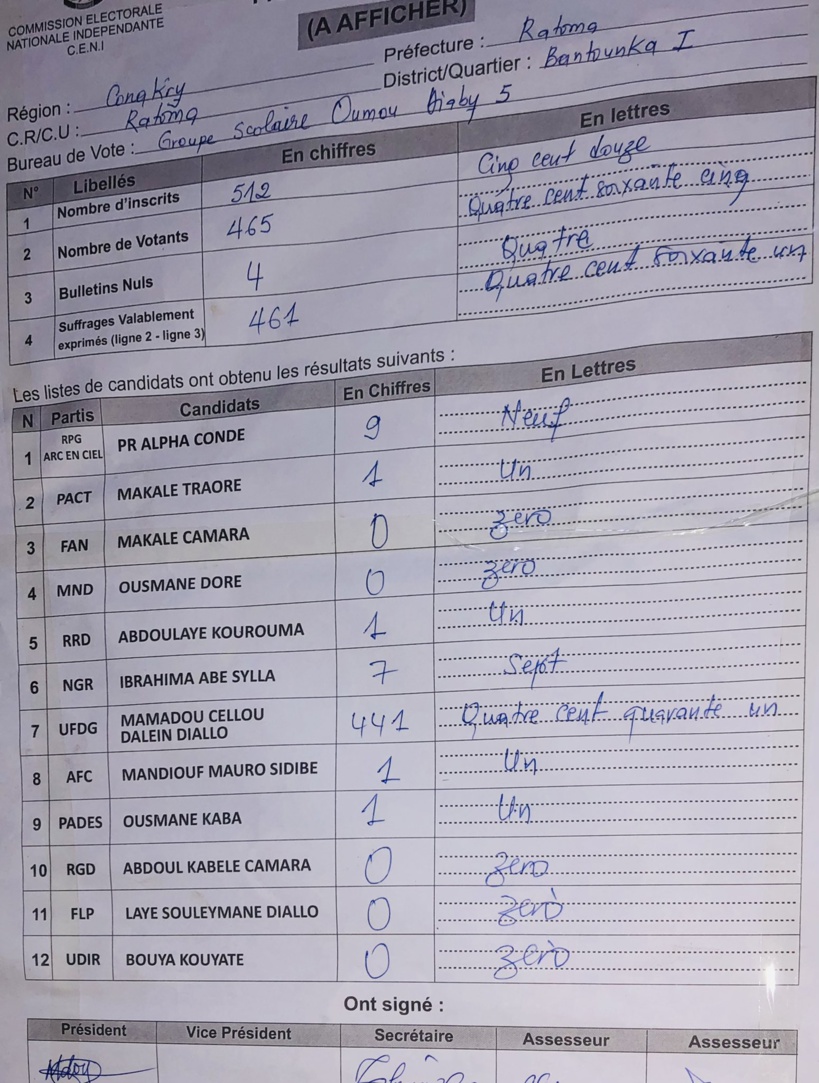 COMMISSION ELECTORALE
NATIONALE INDEPENDANTE
C.E.N.I
(A AFFICHER)
Préfecture : Ratoma
Région : Conakry
District/Quartier : Bantounka I
C.R/C.U : Ratoma
Bureau de Vote : Groupe Scolaire Oumou Diaby 5
N° Libellés En chiffres En lettres
1 Nombre d'inscrits 512 Cinq cent douze
2 Nombre de Votants 465 Quatre cent soixante cinq
3 Bulletins Nuls 4 Quatre
4 Suffrages Valablement exprimés (ligne 2 - ligne 3) 461 Quatre cent soixante un
Les listes de candidats ont obtenu les résultats suivants :
N Partis Candidats En Chiffres En Lettres
1 RPG ARC EN CIEL PR ALPHA CONDE 9 Neuf
2 PACT MAKALE TRAORE 1 Un
3 FAN MAKALE CAMARA 0 zero
4 MND OUSMANE DORE 0 zero
5 RRD ABDOULAYE KOUROUMA 1 Un
6 NGR IBRAHIMA ABE SYLLA 7 Sept
7 UFDG MAMADOU CELLOU DALEIN DIALLO 441 Quatre cent quarante un
8 AFC MANDIOUF MAURO SIDIBE 1 Un
9 PADES OUSMANE KABA 1 Un
10 RGD ABDOUL KABELE CAMARA 0 zero
11 FLP LAYE SOULEYMANE DIALLO 0 zero
12 UDIR BOUYA KOUYATE 0 zero
Ont signé :
Président Vice Président Secrétaire Assesseur Assesseur